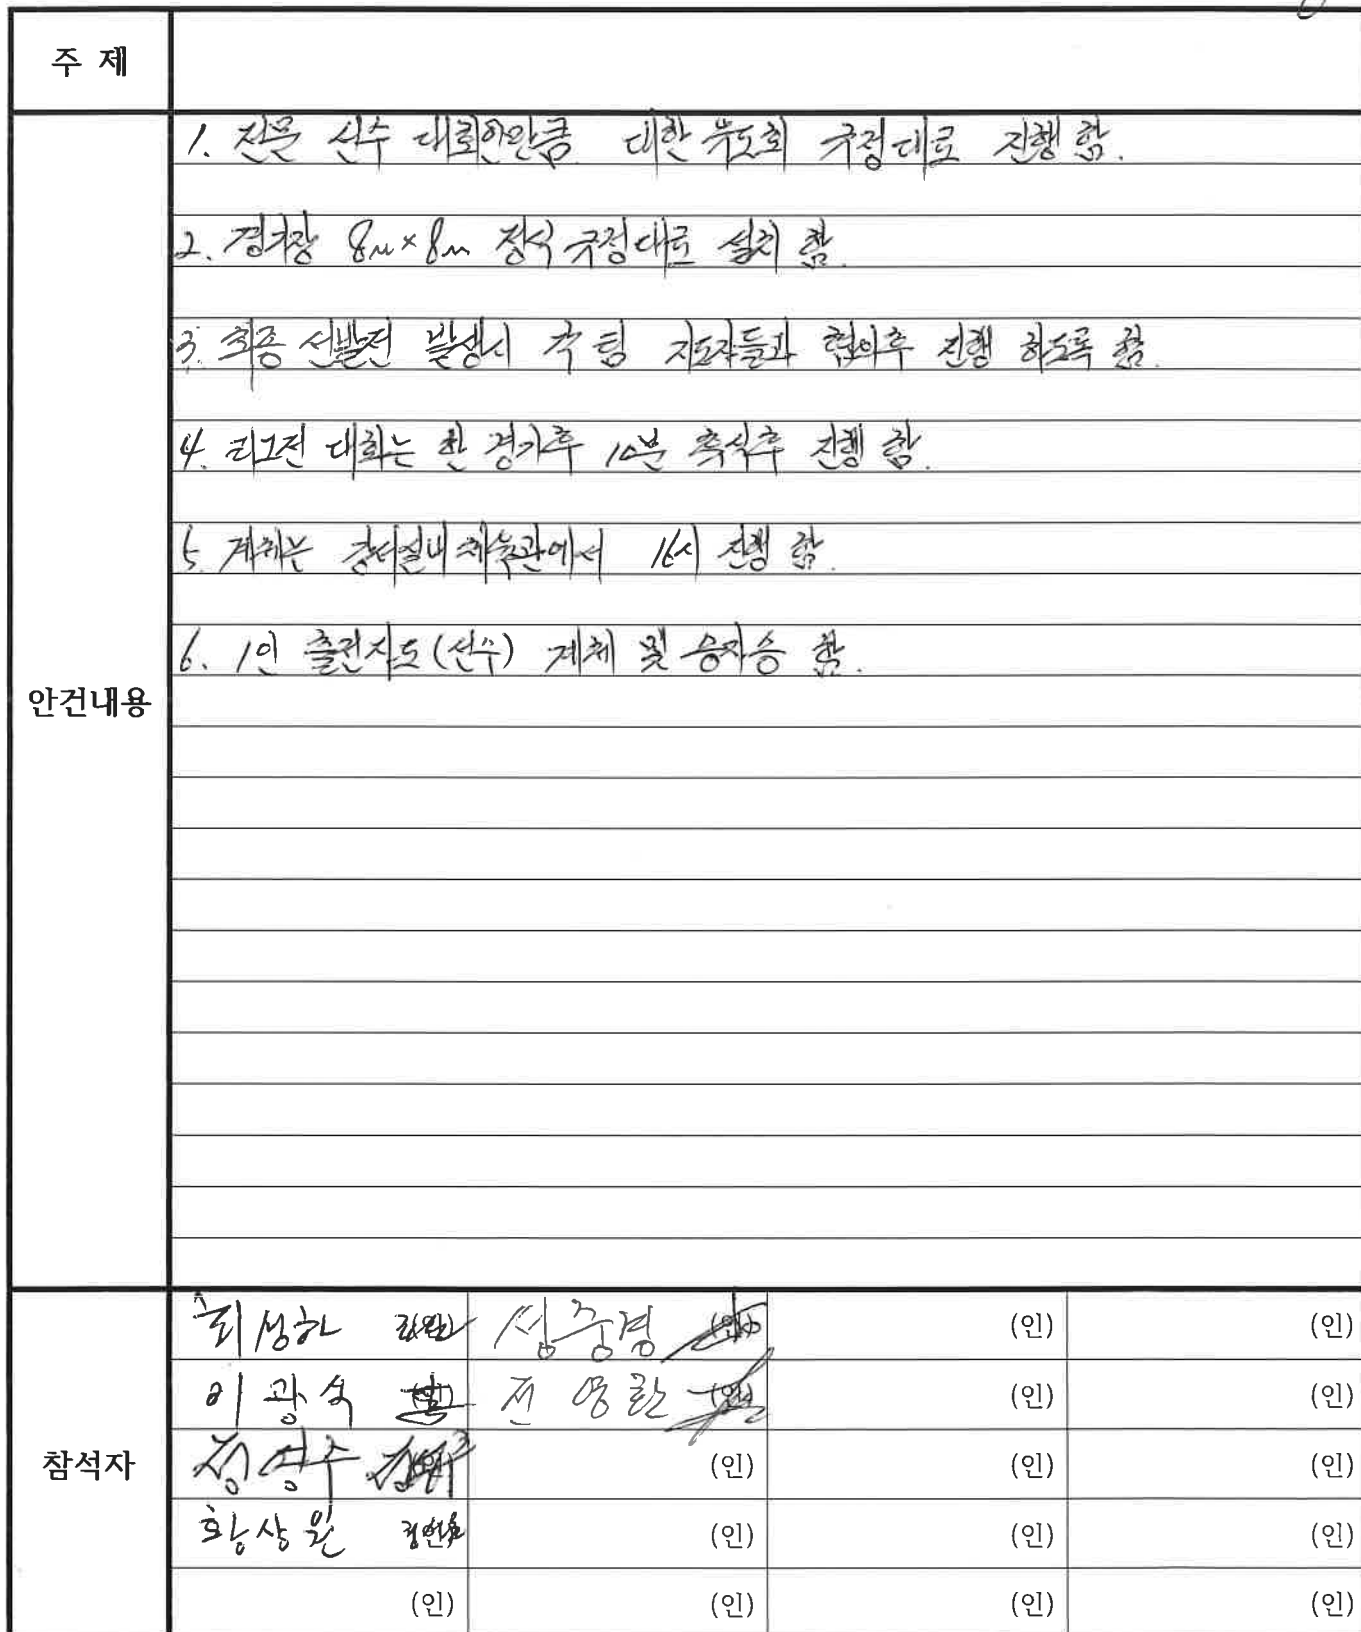 주 제
1. 전문 선수 대회인만큼 대한유도회 규정대로 진행 함.
2. 경기장 8m×8m 정식 규정대로 설치 함.
3. 최종 선발전 발생시 각 팀 지도자들과 협의후 진행 하도록 함.
4. 리그전 대회는 한 경기후 10분 휴식후 진행 함.
5. 계체는 강서실내체육관에서 16시 진행 함.
6. 1인 출전지도(선수) 계체 및 승자승 함.
안건내용
참석자
최성하 심중경 (인) (인) (인)
이광숙 (인) 전영란 (인) (인) (인)
정성수 (인) (인) (인)
황상원 (인) (인) (인)
(인) (인) (인) (인)